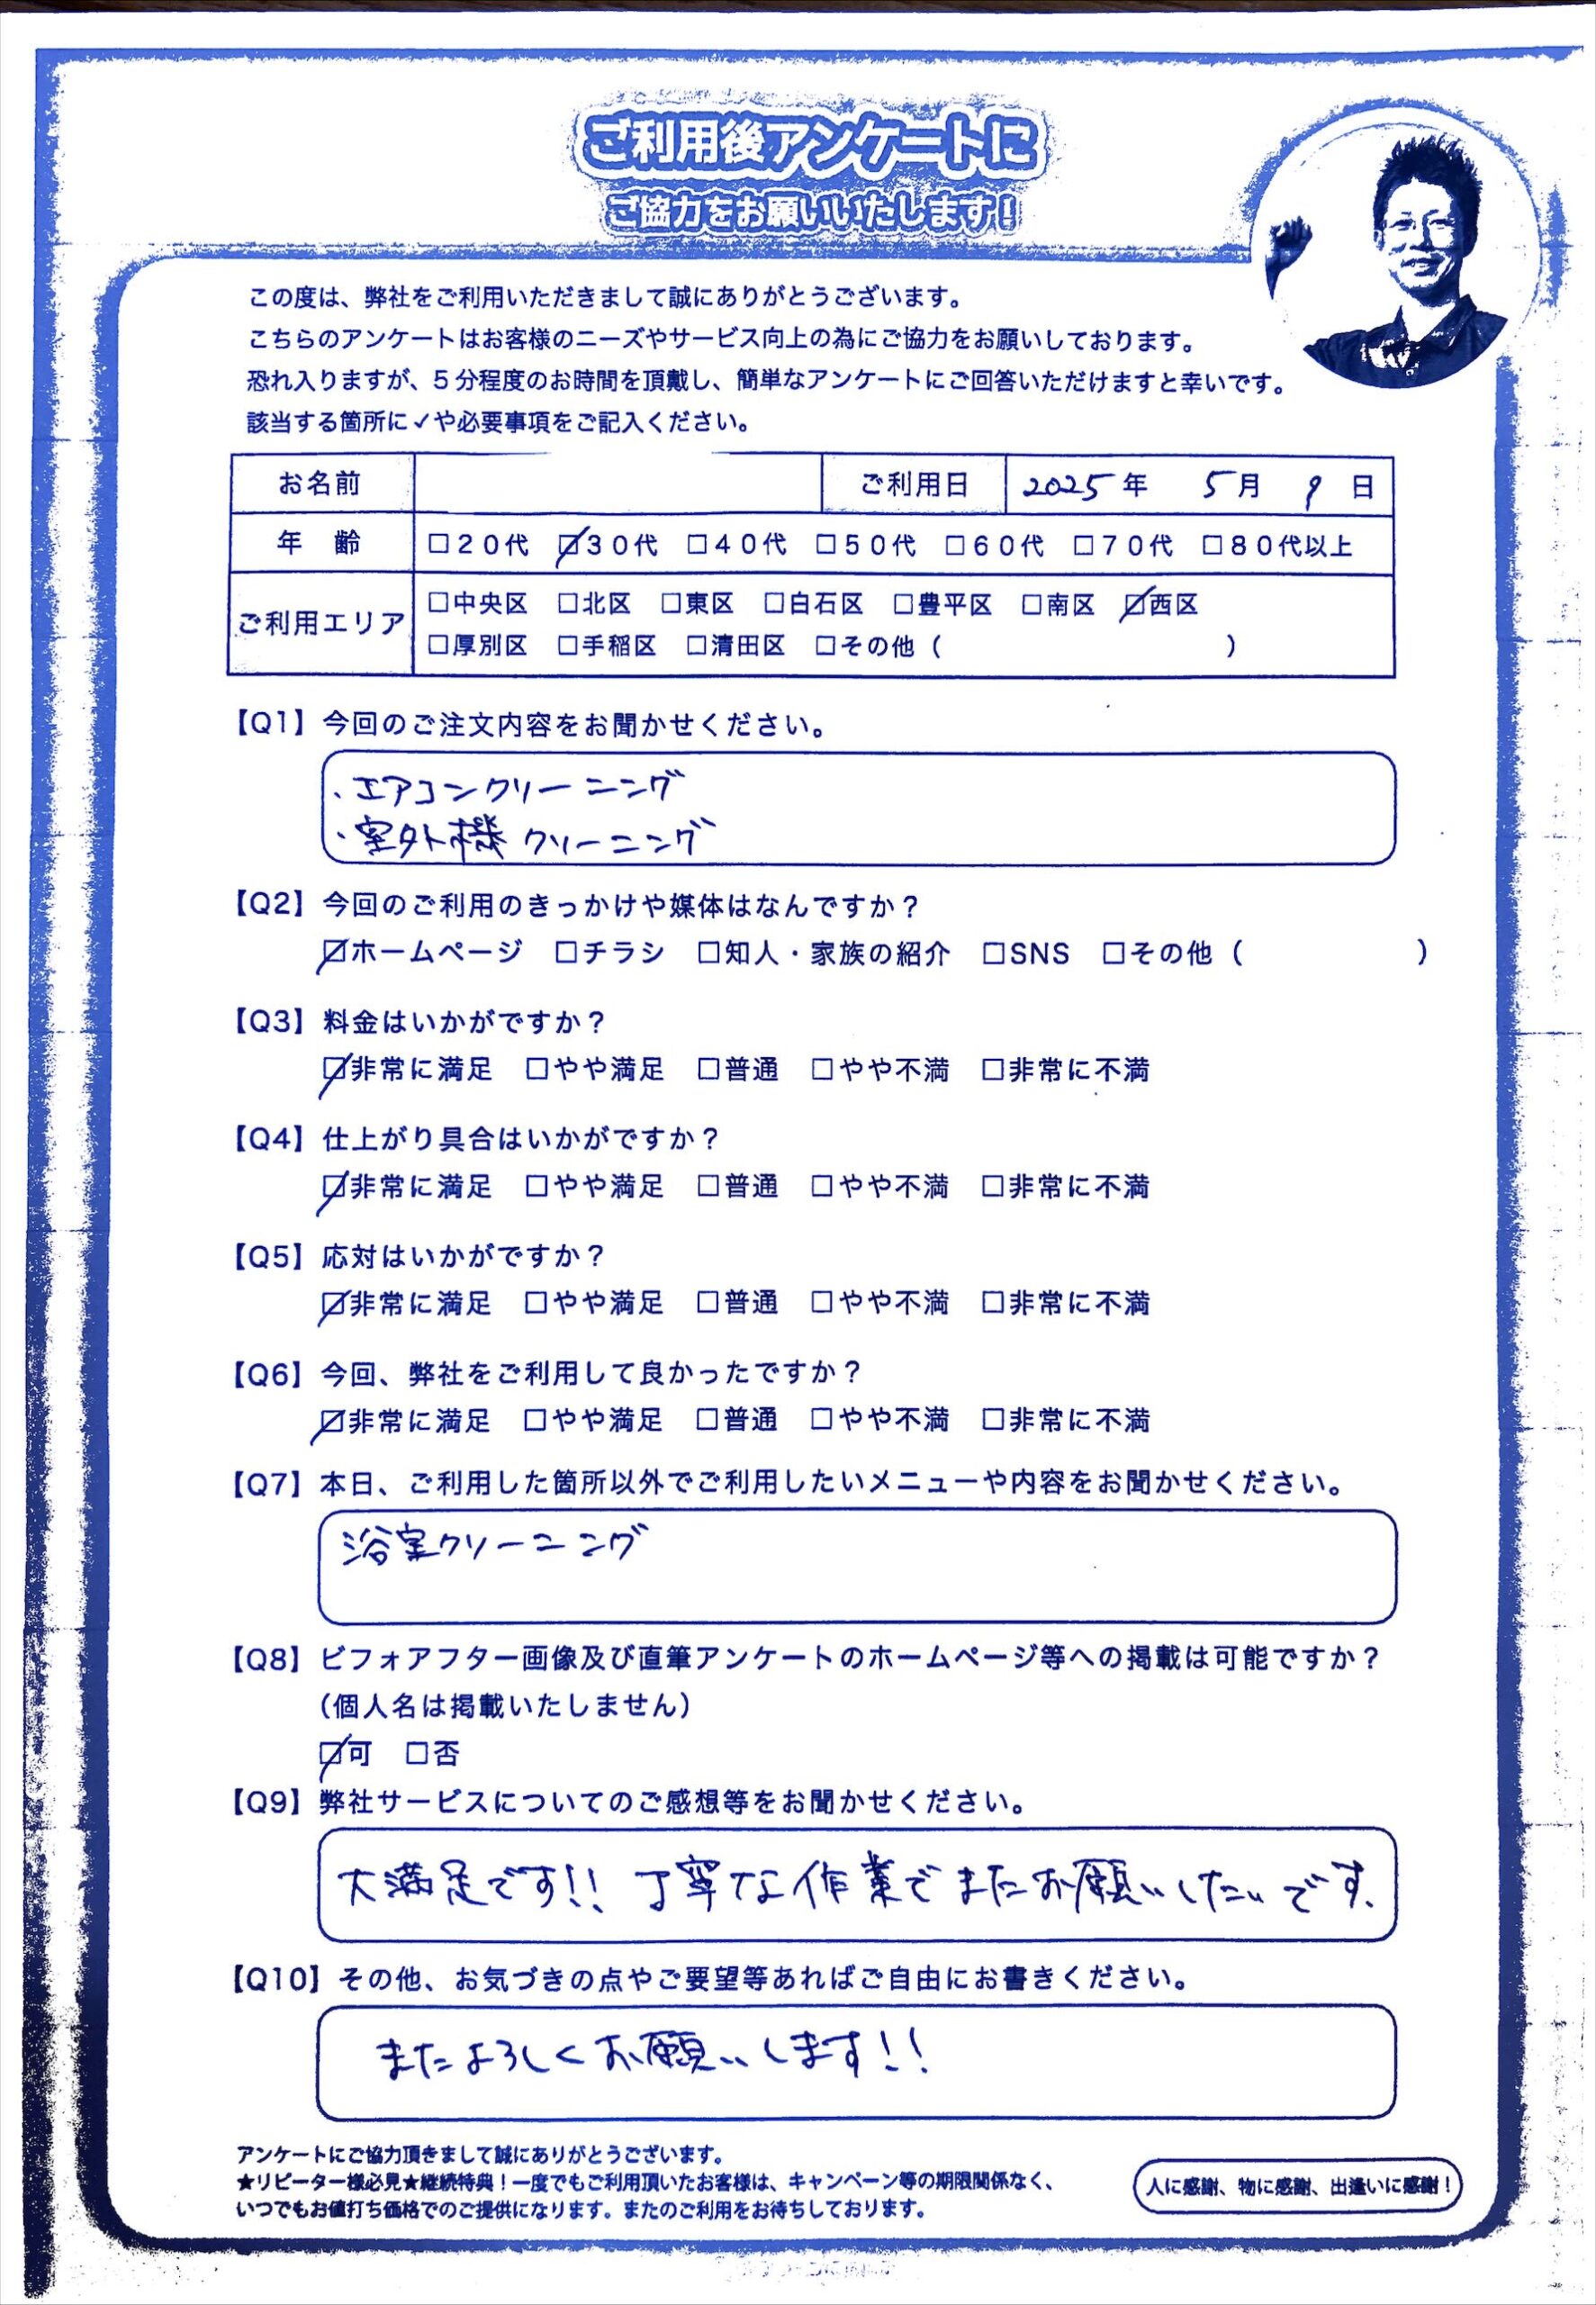 ご利用後アンケートに
ご協力をお願いいたします!
この度は、弊社をご利用いただきまして誠にありがとうございます。
こちらのアンケートはお客様のニーズやサービス向上の為にご協力をお願いしております。
恐れ入りますが、5分程度のお時間を頂戴し、簡単なアンケートにご回答いただけますと幸いです。
該当する箇所に✓や必要事項をご記入ください。
お名前 ご利用日 2025年 5月 9日
年 齢 □20代 ☑30代 □40代 □50代 □60代 □70代 □80代以上
ご利用エリア □中央区 □北区 □東区 □白石区 □豊平区 □南区 ☑西区
□厚別区 □手稲区 □清田区 □その他( )
【Q1】今回のご注文内容をお聞かせください。
・エアコンクリーニング
・室外機クリーニング
【Q2】今回のご利用のきっかけや媒体はなんですか?
☑ホームページ □チラシ □知人・家族の紹介 □SNS □その他( )
【Q3】料金はいかがですか?
☑非常に満足 □やや満足 □普通 □やや不満 □非常に不満
【Q4】仕上がり具合はいかがですか?
☑非常に満足 □やや満足 □普通 □やや不満 □非常に不満
【Q5】応対はいかがですか?
☑非常に満足 □やや満足 □普通 □やや不満 □非常に不満
【Q6】今回、弊社をご利用して良かったですか?
☑非常に満足 □やや満足 □普通 □やや不満 □非常に不満
【Q7】本日、ご利用した箇所以外でご利用したいメニューや内容をお聞かせください。
浴室クリーニング
【Q8】ビフォアフター画像及び直筆アンケートのホームページ等への掲載は可能ですか?
(個人名は掲載いたしません)
☑可 □否
【Q9】弊社サービスについてのご感想等をお聞かせください。
大満足です!! 丁寧な作業でまたお願いしたいです。
【Q10】その他、お気づきの点やご要望等あればご自由にお書きください。
またよろしくお願いします!!
アンケートにご協力頂きまして誠にありがとうございます。
★リピーター様必見★継続特典!一度でもご利用頂いたお客様は、キャンペーン等の期限関係なく、
いつでもお値打ち価格でのご提供になります。またのご利用をお待ちしております。
人に感謝、物に感謝、出逢いに感謝!